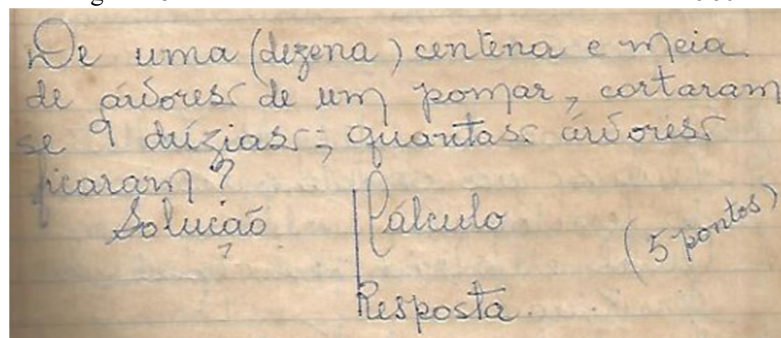 De uma (dezena) centena e meia
de árvores de um pomar, cortaram
se 9 dúzias; quantas árvores
ficaram?
Solução Cálculo (5 pontos)
Resposta.